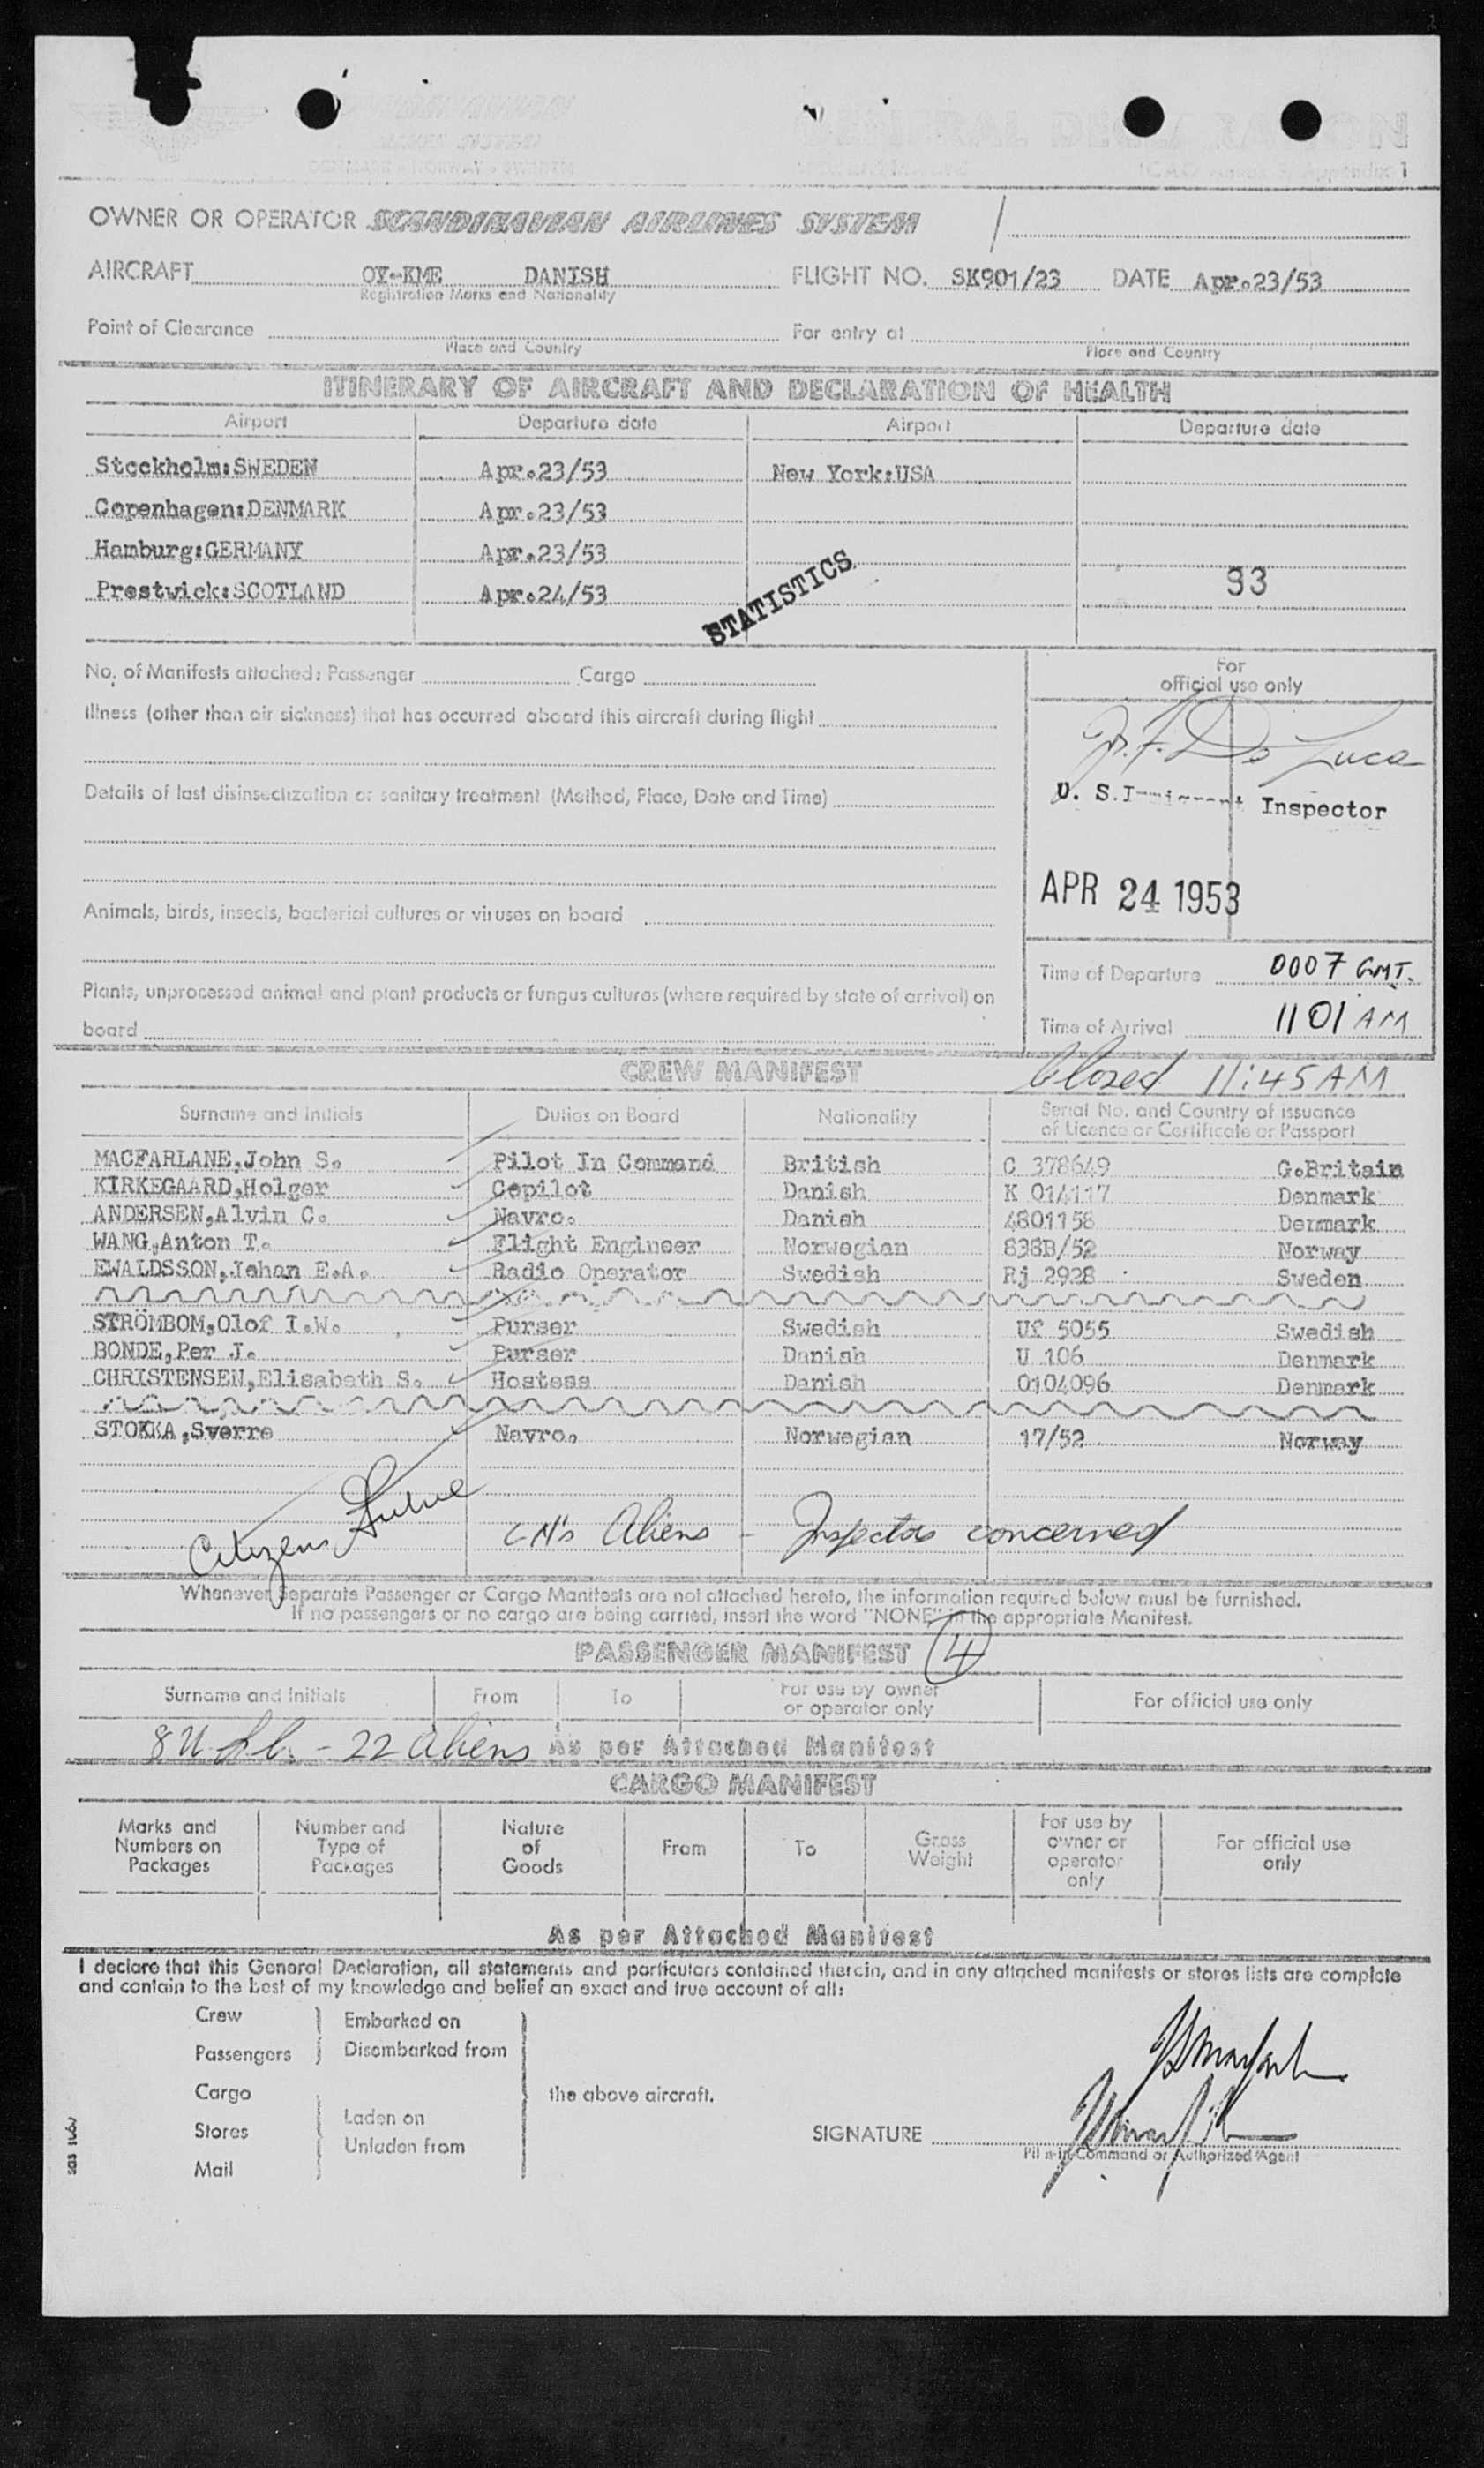 OWNER OR OPERATOR SCANDINAVIAN AIRLINES SYSTEM
AIRCRAFT OY-KME DANISH FLIGHT NO. SK901/23 DATE Apr.23/53
Registration Marks and Nationality
Point of Clearance For entry at
Place and Country Place and Country
ITINERARY OF AIRCRAFT AND DECLARATION OF HEALTH
Airport Departure date Airport Departure date
Stockholm:SWEDEN Apr.23/53 New York:USA
Copenhagen:DENMARK Apr.23/53
Hamburg:GERMANY Apr.23/53
Prestwick:SCOTLAND Apr.24/53
STATISTICS
93
No. of Manifests attached: Passenger Cargo
For
official use only
Illness (other than air sickness) that has occurred aboard this aircraft during flight
De Luca
Details of last disinsectization or sanitary treatment (Method, Place, Date and Time)
U. S. Immigrant Inspector
APR 24 1953
Animals, birds, insects, bacterial cultures or viruses on board
Time of Departure 0007 GMT.
Plants, unprocessed animal and plant products or fungus cultures (where required by state of arrival) on
board
Time of Arrival 1101 AM
CREW MANIFEST
Closed 11:45 AM
Surname and Initials Duties on Board Nationality Serial No. and Country of issuance
of Licence or Certificate or Passport
MACFARLANE,John S. Pilot In Command British C 378649 G.Britain
KIRKEGAARD,Holger Copilot Danish K 014117 Denmark
ANDERSEN,Alvin C. Navro. Danish 4801158 Denmark
WANG,Anton T. Flight Engineer Norwegian 838B/52 Norway
EWALDSSON,Johan E.A. Radio Operator Swedish Rj 2928 Sweden
STRÖMBOM,Olof I.W. Purser Swedish Uf 5055 Swedish
BONDE,Per J. Purser Danish U 106 Denmark
CHRISTENSEN,Elisabeth S. Hostess Danish 0104096 Denmark
STOKKA,Sverre Navro. Norwegian 17/52 Norway
Citizens
Aliens - Inspectors concerned
Whenever Separate Passenger or Cargo Manifests are not attached hereto, the information required below must be furnished.
If no passengers or no cargo are being carried, insert the word "NONE" in the appropriate Manifest.
PASSENGER MANIFEST 4
Surname and Initials From To For use by owner
or operator only For official use only
8 - 22 aliens As per Attached Manifest
CARGO MANIFEST
Marks and
Numbers on
Packages
Number and
Type of
Packages
Nature
of
Goods
From
To
Gross
Weight
For use by
owner or
operator
only
For official use
only
As per Attached Manifest
I declare that this General Declaration, all statements and particulars contained therein, and in any attached manifests or stores lists are complete
and contain to the best of my knowledge and belief an exact and true account of all:
Crew Embarked on
Passengers Disembarked from
Cargo the above aircraft.
Laden on
Stores
SIGNATURE
Unladen from
Pilot-in-Command or Authorized Agent
Mail